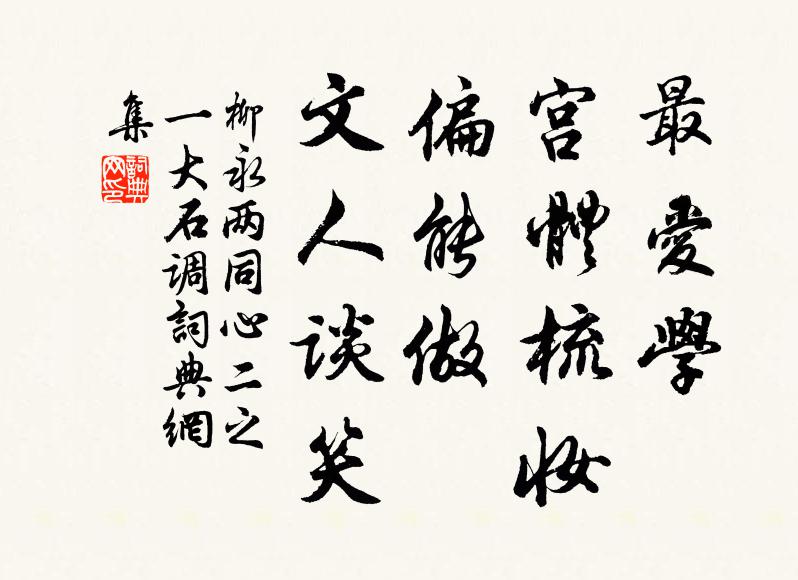 最愛學
宮體梳妆
偏能做
文人談笑
柳永两同心二之
一大石调詞典網
集
詞典
网印